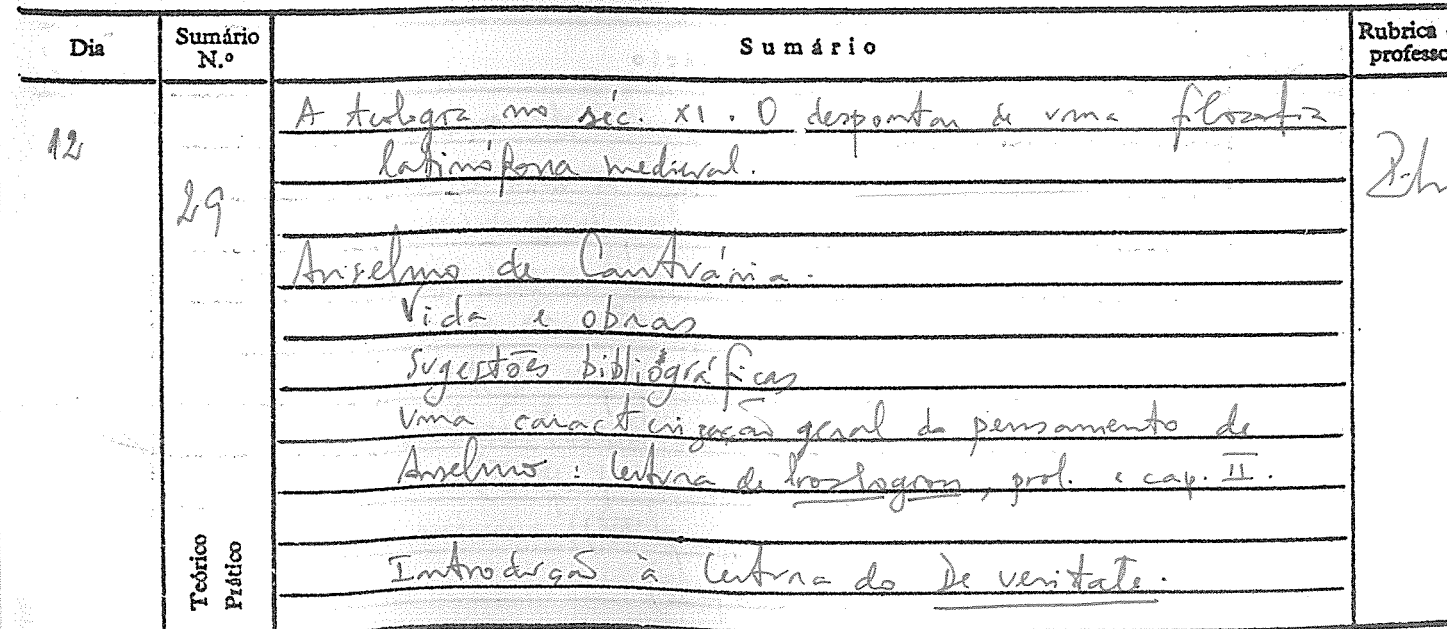 Dia
Sumário N.º
Sumário
Rubrica
professo
12
29
A teologia no séc. XI. O despontar de uma filosofia
latinófona medieval.
Anselmo de Cantuária.
Vida e obras
Sugestões bibliográficas
Uma caracterização geral do pensamento de
Anselmo: leitura de Proslogion, prol. e cap. II.
Teórico
Prático
Introdução à leitura do De veritate.